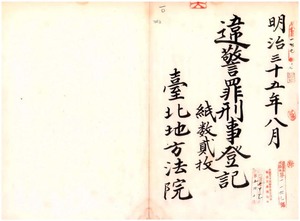 明治三十五年八月
違警罪刑事登記
紙數貳枚
臺北地方法院